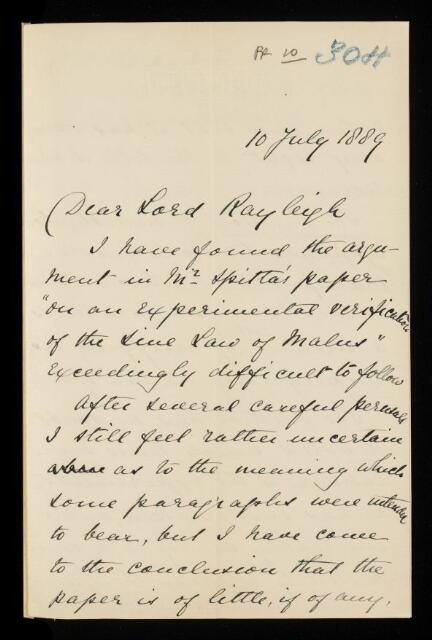 10
30H
10 July 1889
Dear Lord Rayleigh
I have found the argu-
ment in Mr. Spitta's paper
"on an experimental verification
of the Sine Law of Malus"
exceedingly difficult to follow
After several careful perusals
I still feel rather uncertain
as to the meaning which
some paragraphs were intended
to bear, but I have come
to the conclusion that the
paper is of little, if of any,